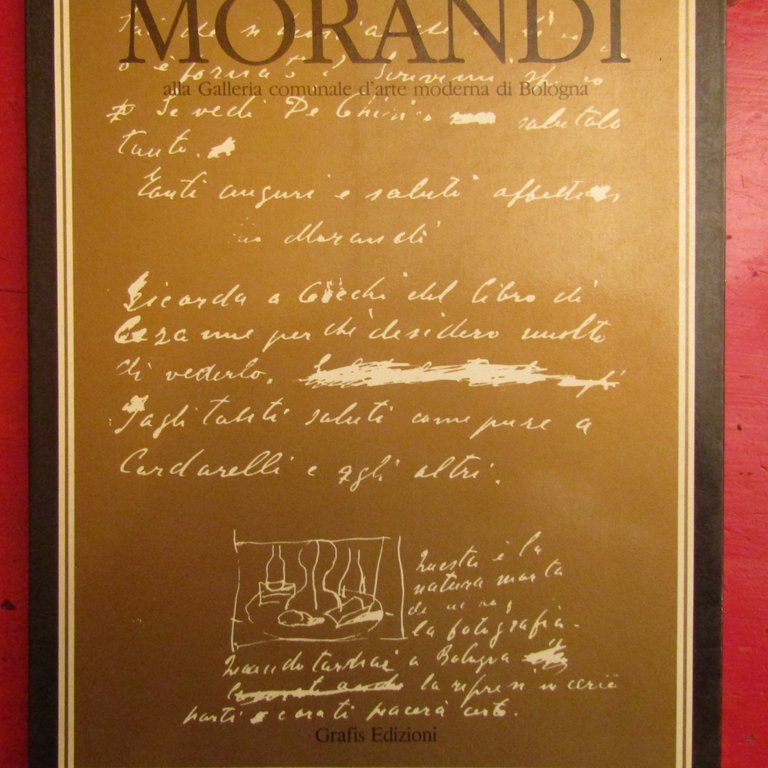 MORANDI
alla Galleria comunale d'arte moderna di Bologna
è tornato? Scrivemi
Se vedi De Chirico salutalo
tanto.
Tanti auguri e saluti
Morandi
Ricorda a Cecchi del libro di
Cezanne perchè desidero molto
di vederlo.
Fagli tanti saluti come pure a
Cardarelli e agli altri.
Questa è la
natura morta
di cui
la fotografia.
Quando tornerai a Bologna
la ripresi in certe
parti e ora ti piacerà certo.
Grafis Edizioni